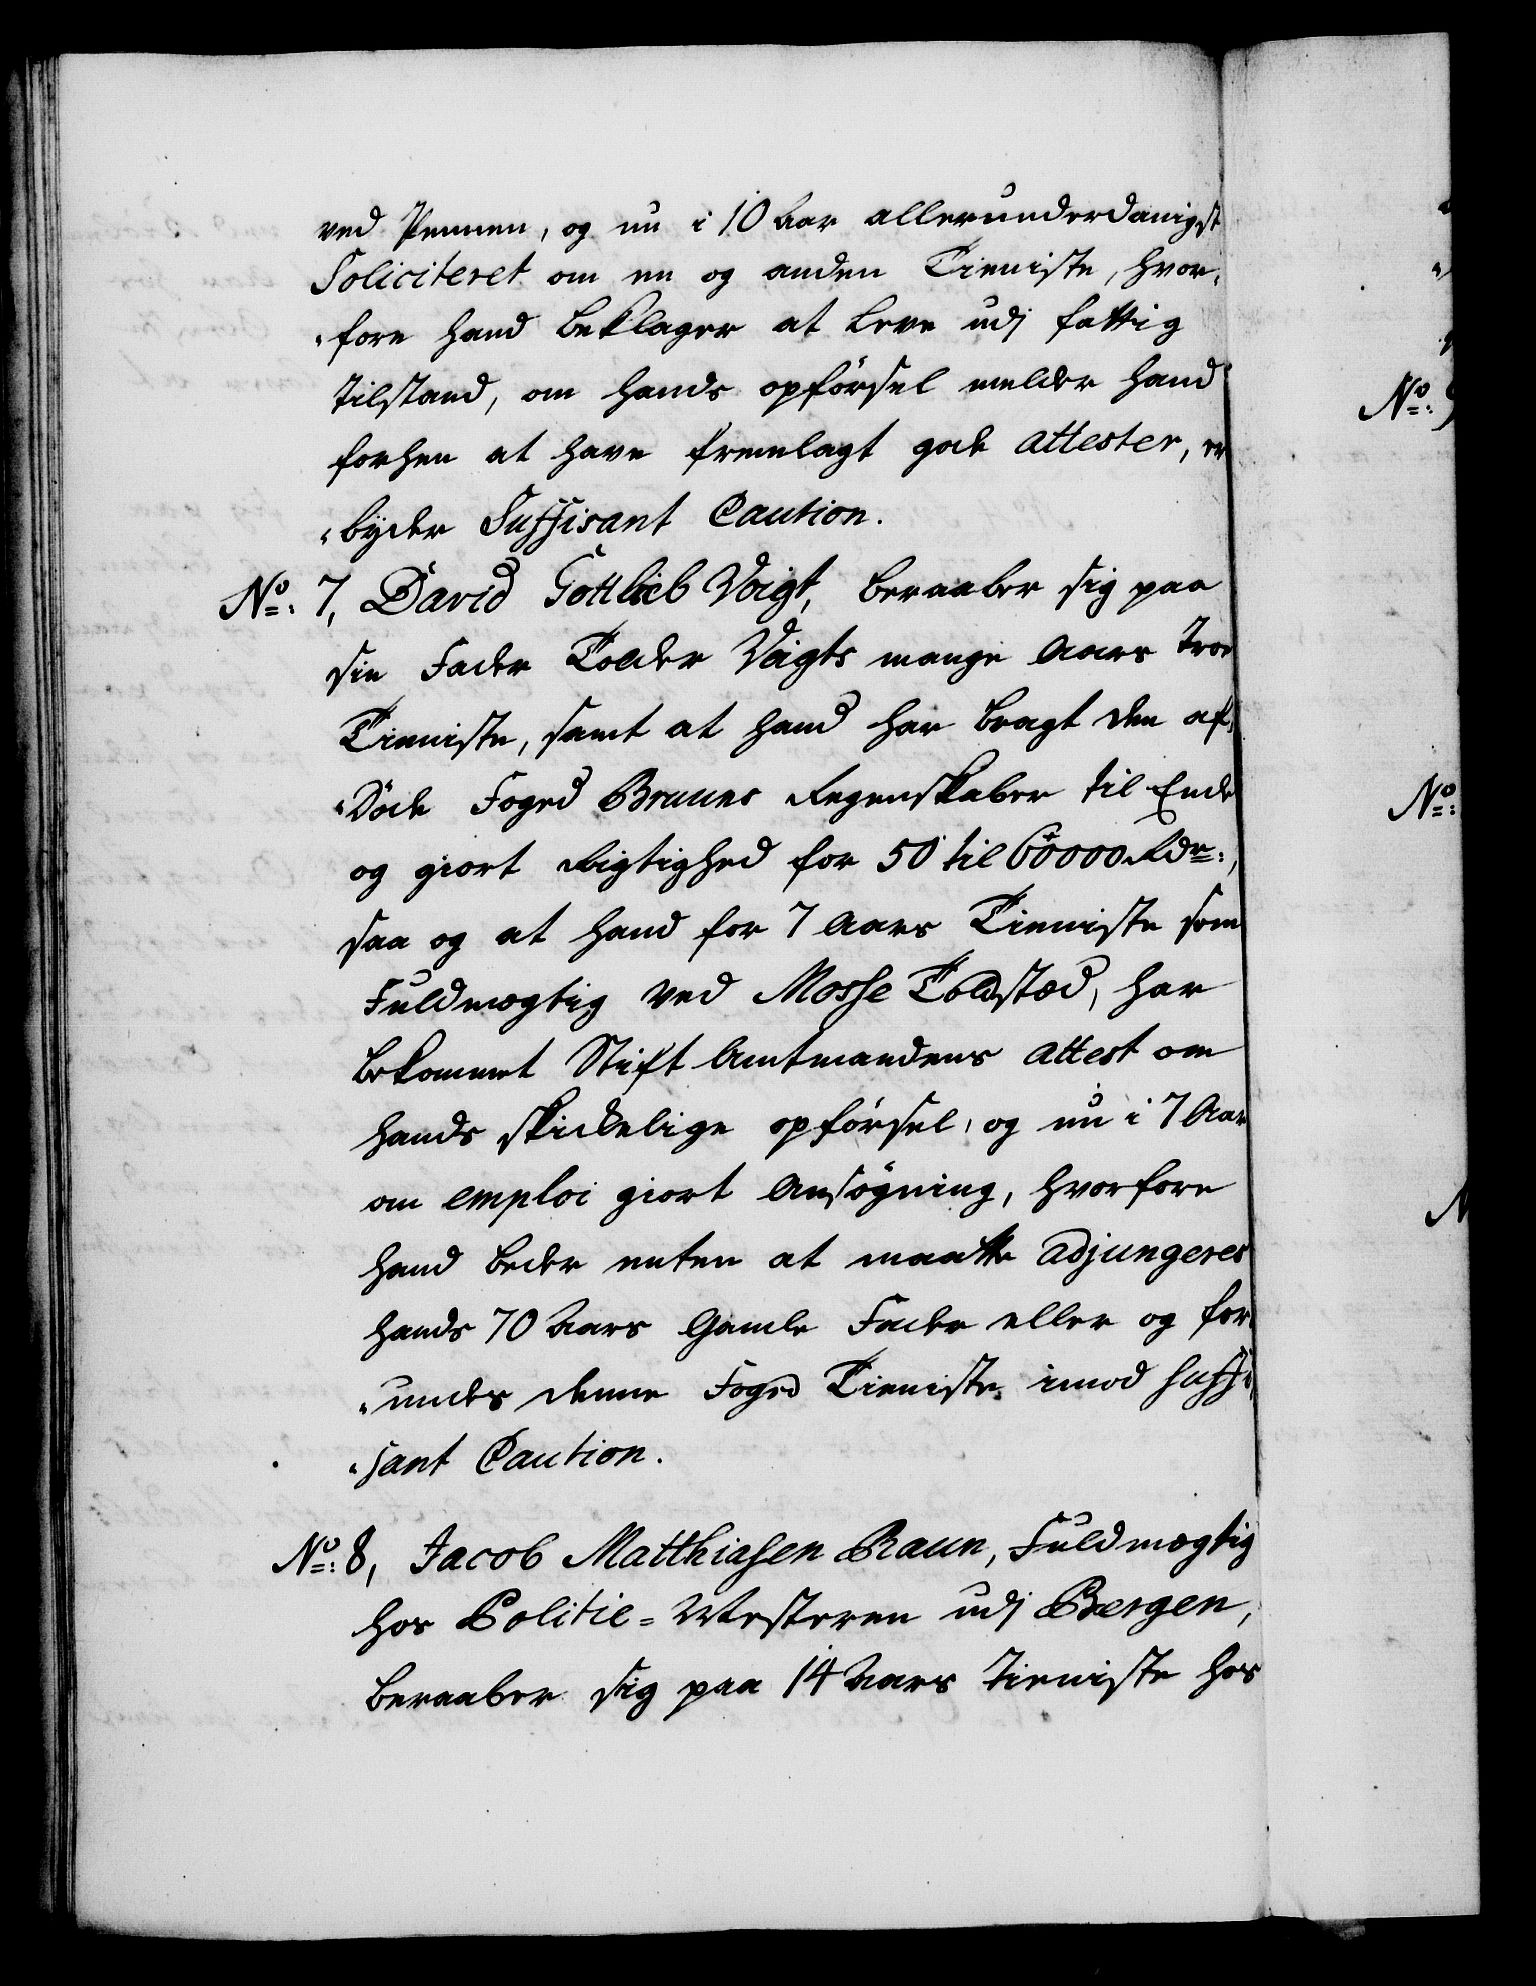 ved Pennen, og nu i 10 Aar allerunderdanigst
Soliciteret om en og anden Tieniste, hvor,
"fore hand beklager at leve udj fattig
tilstand, om hands opförsel melder hand
forhen at have fremlagt gode attester, er
"byder Suffisant Caution.
No: 7, David Gottlieb Voigt, beraaber sig paa
sin Fader Tolder Voigts mange Aars Troe
Tieniste, samt at hand har bragt den af,
"Døde Foged Bruuns Regenskaber til Ende
og giort Rigtighed for 50 til 60000 Rdr:,
saa og at hand for 7 Aars Tieniste som
Fuldmægtig ved Mosse Toldsted, har
bekommet Stift Amtmandens attest om
hands skickelige opförsel, og nu i 7 Aar
om emploi giort Ansøgning, hvorfore
hand beder enten at maatte adjungeres
hands 70 Aars Gamle Fader eller og for
"undes denne Foged Tieniste imod Suffi,
"sant Caution.
No: 8, Jacob Matthiasen Raun, Fuldmægtig
hos Politie=Mesteren udj Bergen,
beraaber sig paa 14 Aars tieniste hos
No: 9
No:
N